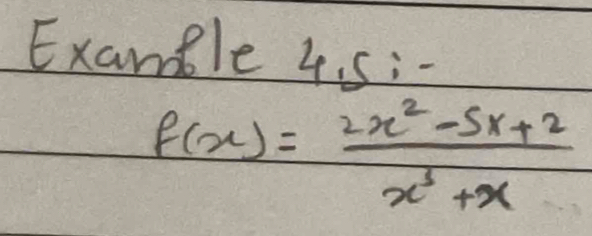 Example 4.5:-
f(x) = (2x² - 5x + 2) / (x³ + x)